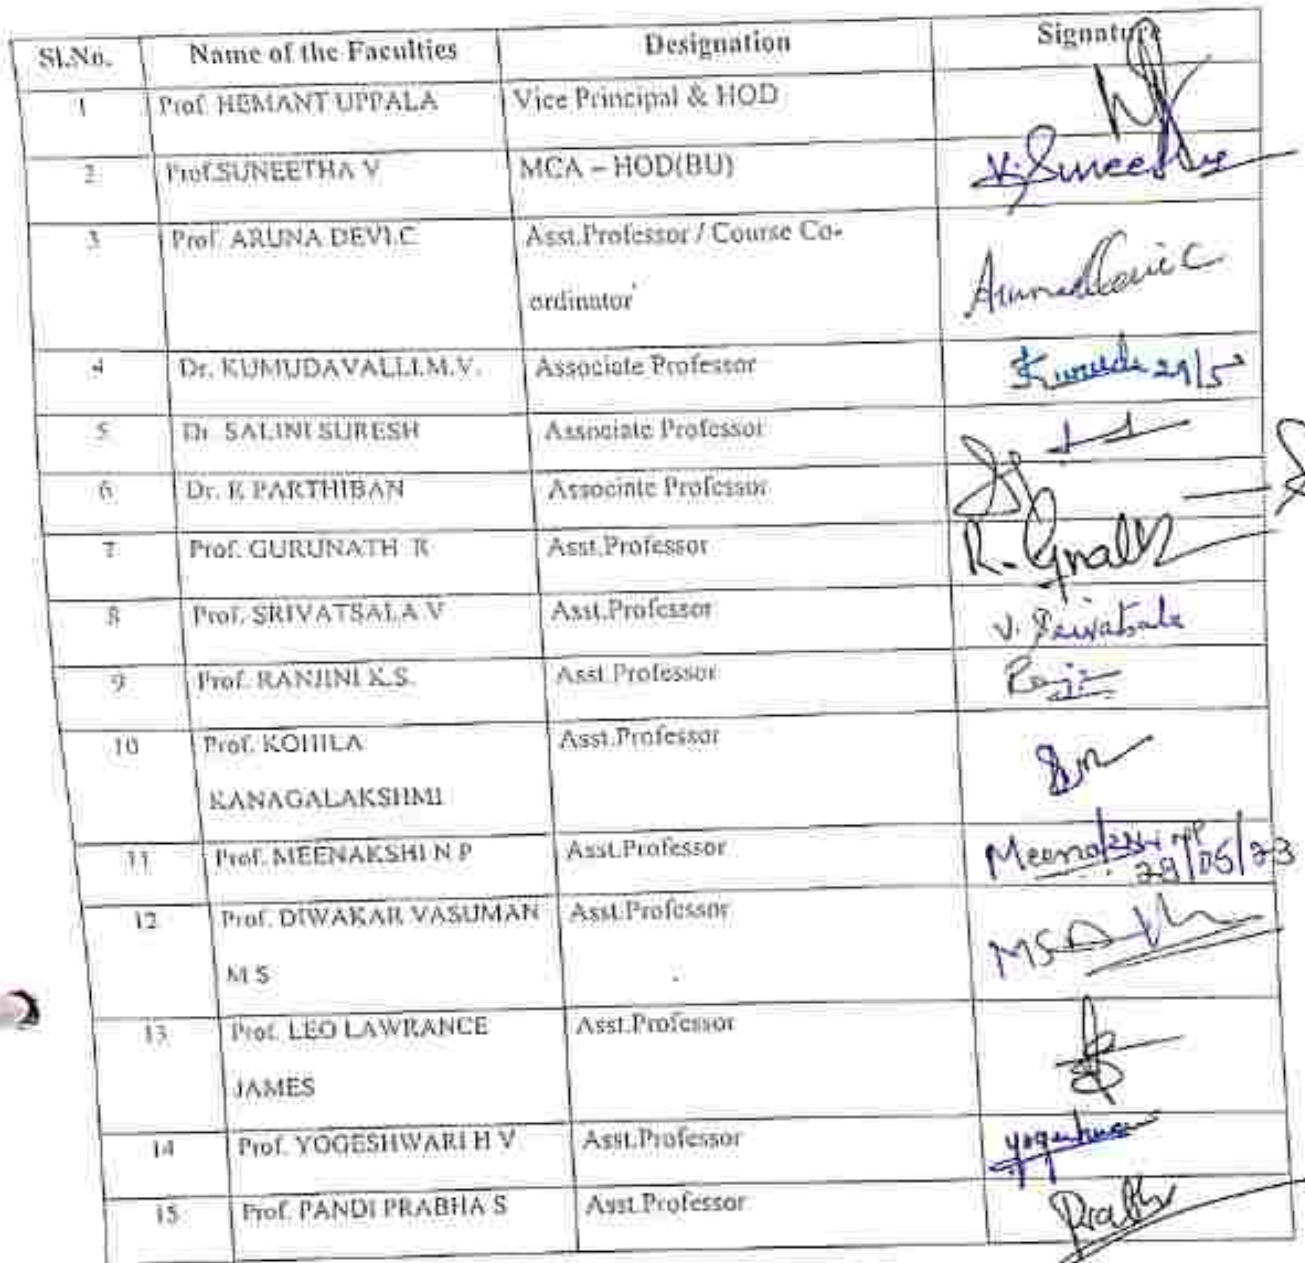 Sl.No. Name of the Faculties Designation Signature
1 Prof. HEMANT UPPALA Vice Principal & HOD
2 Prof.SUNEETHA V MCA – HOD(BU) V. Suneetha
3 Prof. ARUNA DEVI.C Asst.Professor / Course Co- Arunadevi C
ordinator
4 Dr. KUMUDAVALLI.M.V. Associate Professor Kumuda 29/5
5 Dr. SALINI SURESH Associate Professor
6 Dr. K PARTHIBAN Associate Professor
7 Prof. GURUNATH R Asst.Professor R. Gnath
8 Prof. SRIVATSALA V Asst.Professor V. Srivatsala
9 Prof. RANJINI K.S. Asst.Professor
10 Prof. KOHILA Asst.Professor
KANAGALAKSHMI
11 Prof. MEENAKSHI N P Asst.Professor Meenakshi NP
29/05/23
12 Prof. DIWAKAR VASUMAN Asst.Professor MSD
M S
13 Prof. LEO LAWRANCE Asst.Professor
JAMES
14 Prof. YOGESHWARI H V Asst.Professor
15 Prof. PANDI PRABHA S Asst.Professor